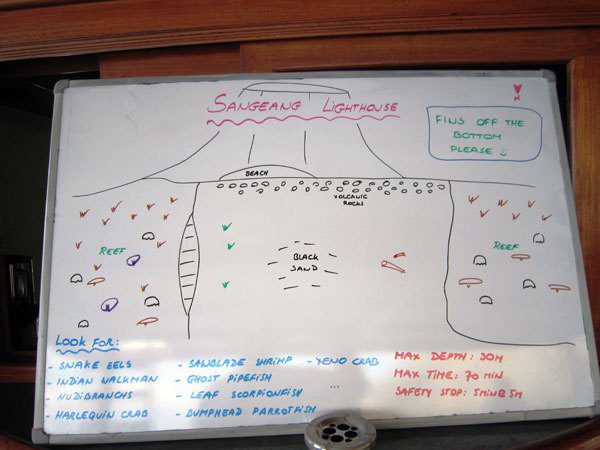 SANGEANG LIGHTHOUSE
N
FINS OFF THE
BOTTOM
PLEASE
BEACH
VOLCANIC
ROCKS
REEF
BLACK
SAND
REEF
LOOK FOR:
- SNAKE EELS
- INDIAN WALKMAN
- NUDIBRANCHS
- HARLEQUIN CRAB
- SAWBLADE SHRIMP
- GHOST PIPEFISH
- LEAF SCORPIONFISH
- BUMPHEAD PARROTFISH
- XENO CRAB
...
MAX DEPTH: 30M
MAX TIME: 70 MIN
SAFETY STOP: 5MIN@5M